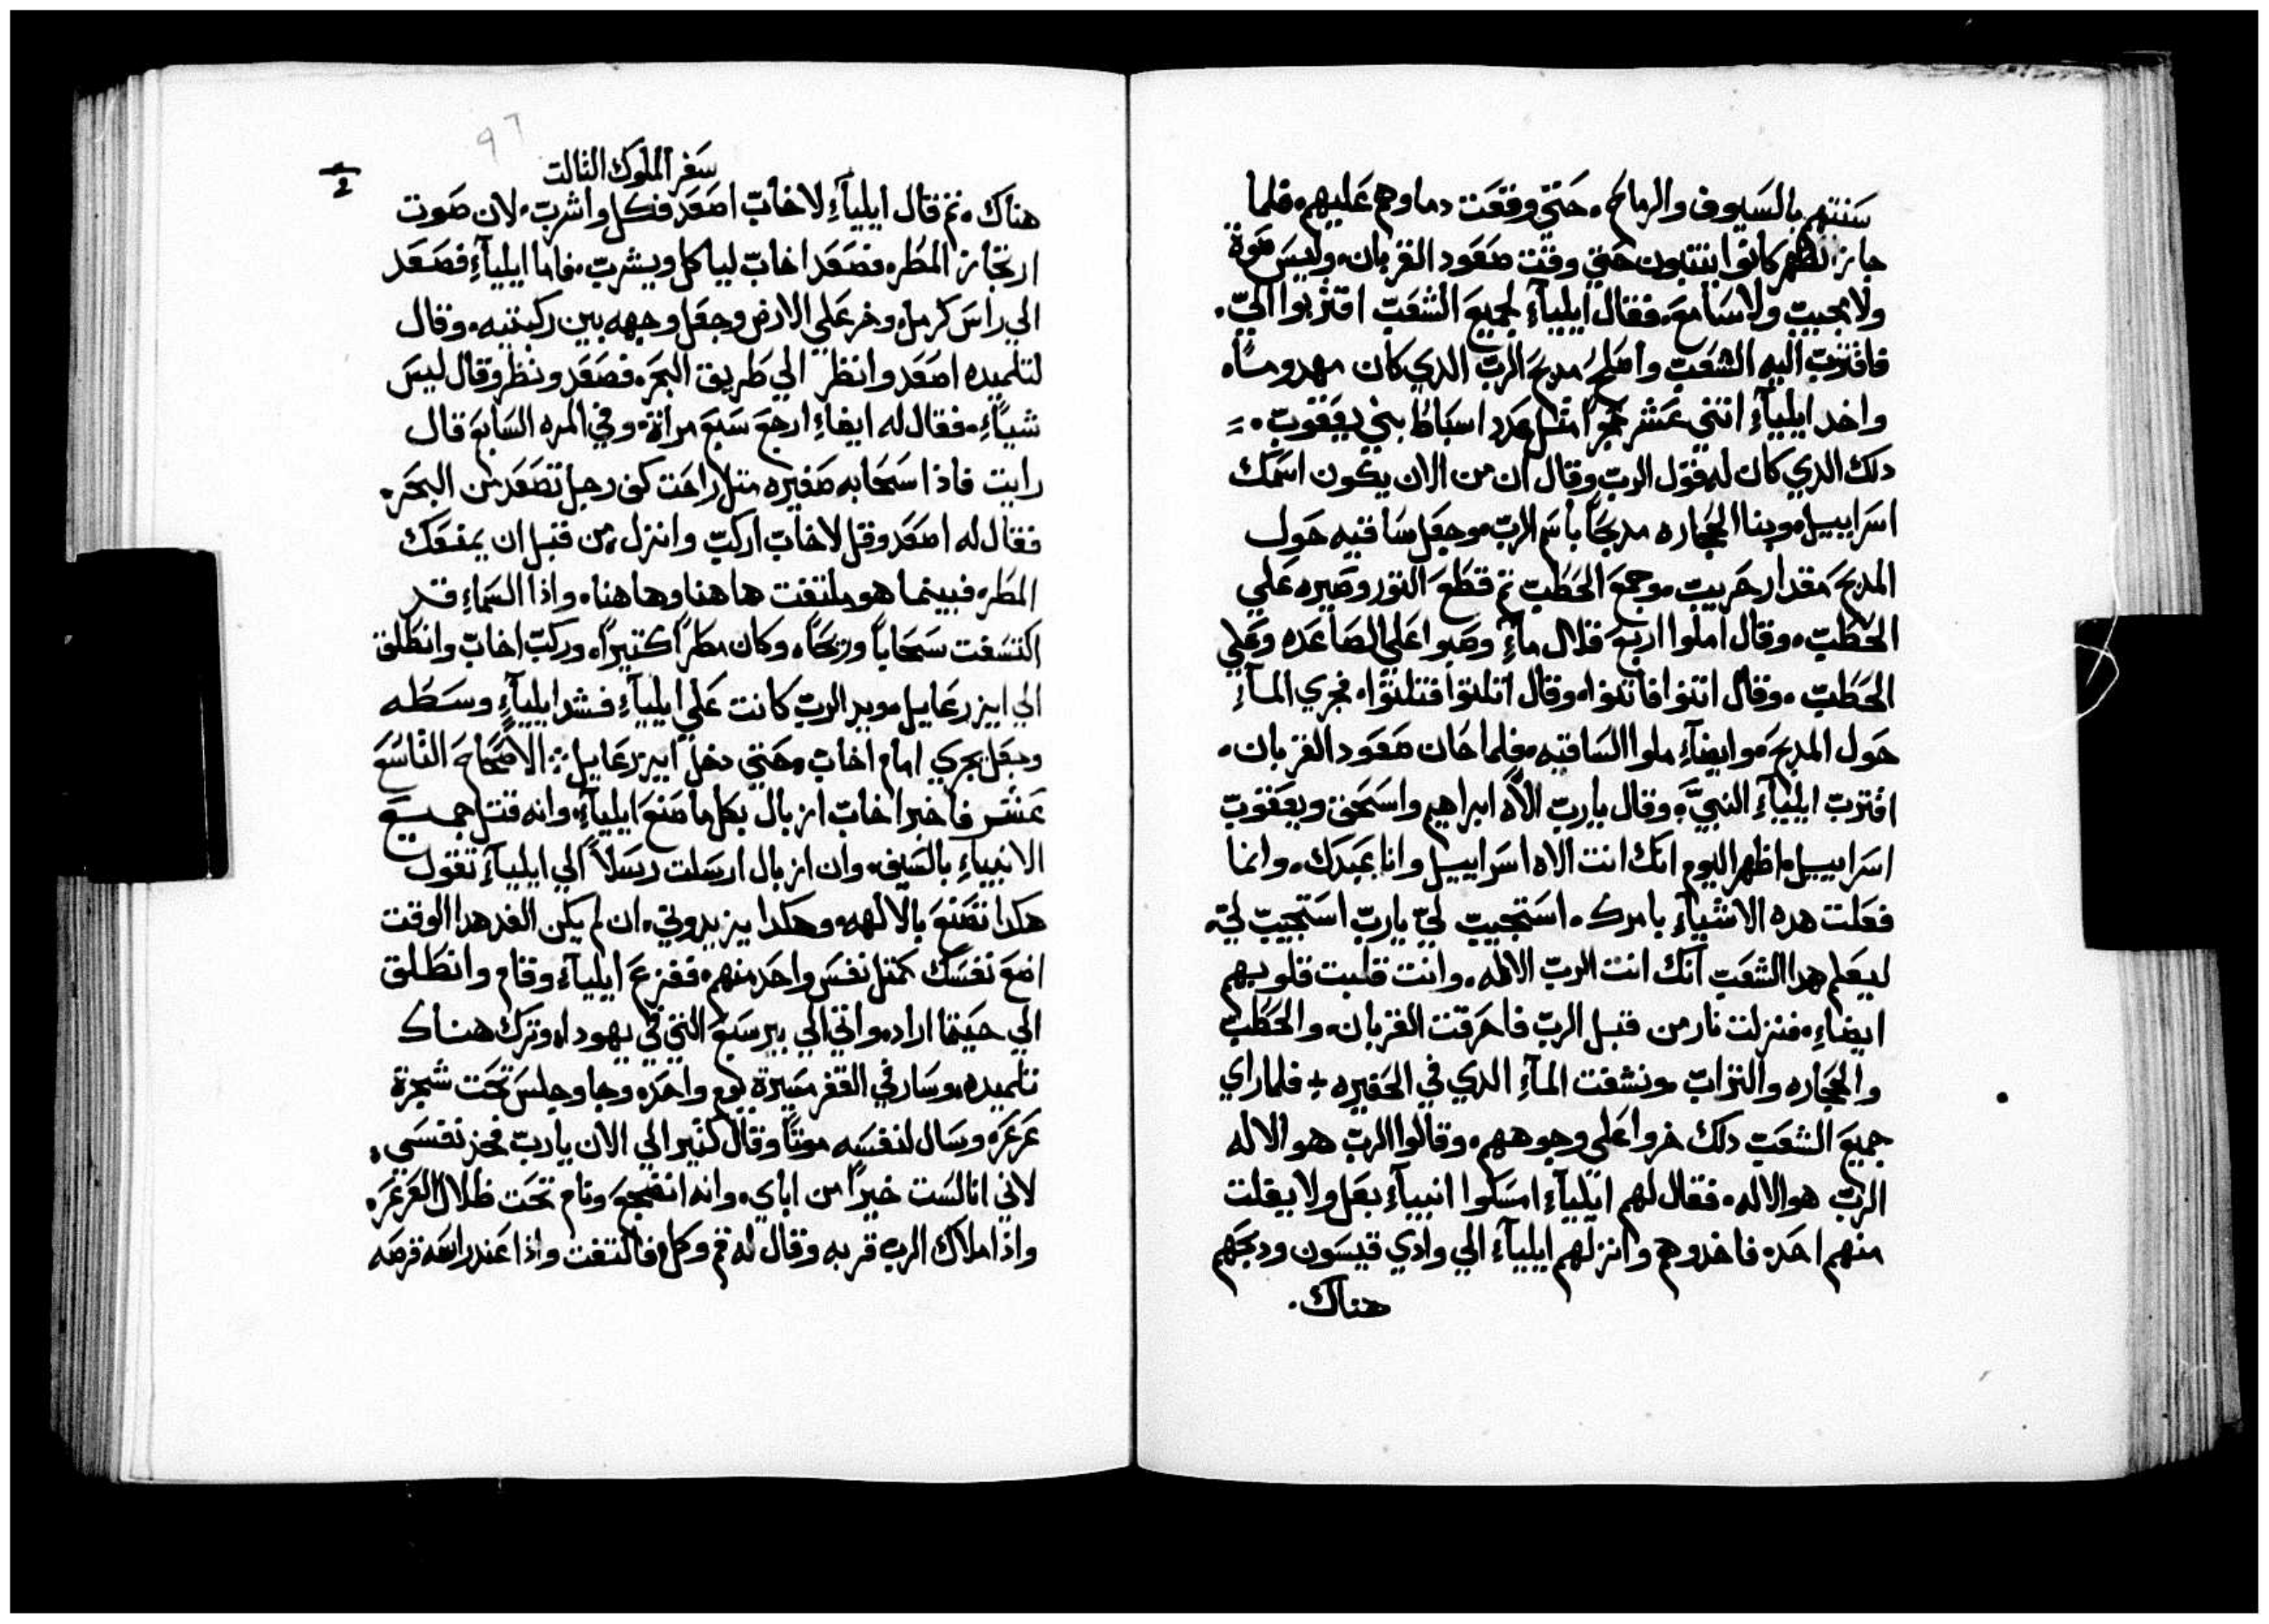 سننتهم بالسيوف والرماح. حتي وقعت دماوهم عليهم. فلما
جاز الظهر كانوا يتنبون حتي وقت صعود القربان. وليس صوة
ولا مجيب ولا سامع. فقال ايلياء لجميع الشعب اقتربوا الي.
فاقترب اليه الشعب واصلح مدبح الرب الدي كان مهدوماً.
واخد ايلياء اثني عشر حجراً مثل عدد اسباط بني يعقوب.
دلك الدي كان له قول الرب وقال ان من الان يكون اسمك
اسراييل. وبنا الحجاره مدبحاً باسم الرب. وجعل ساقيه حول
المدبح مقدار حربيب. وجمع الحطب ثم قطع التور وصيره علي
الحطب. وقال املوا اربع قلال ماء وصبوا علي الصاعده وعلي
الحطب. وقال اتنوا فاتنوا. وقال اتلتوا فتلتوا. فجري الماء
حول المدبح. وايضاء ملوا الساقيه. فلما حان صعود القربان.
اقترب ايلياء النبي. وقال يا رب الاه ابراهيم واسحق ويعقوب
اسراييل. اظهر اليوم انك انت الاه اسراييل وانا عبدك. وانما
فعلت هده الاشياء بامرك. استجيب لي يا رب استجيب لي.
ليعلم هدا الشعب انك انت الرب الاله. وانت قلبت قلوبهم
ايضاء. فنزلت نار من قبل الرب فاحرقت القربان. والحطب
والحجاره والتراب. ونشفت الماء الدي في الحفيره. فلما راي
جميع الشعب دلك خروا علي وجوههم. وقالوا الرب هو الاله
الرب هو الاله. فقال لهم ايلياء امسكوا انبياء بعل ولا يفلت
منهم احد. فاخدوهم وانزلهم ايلياء الي وادي قيسون ودبحهم
هناك.
سفر الملوك الثالت
هناك. ثم قال ايلياء لاخاب اصعد فكل واشرب. لان صوت
ارتجاز المطر. فصعد اخاب لياكل ويشرب. فاما ايلياء فصعد
الي راس كرمل. وخر علي الارض وجعل وجهه بين ركبتيه. وقال
لتلميده اصعد وانظر الي طريق البحر. فصعد ونظر وقال ليس
شياء. فقال له ايضاء ارجع سبع مراة. وفي المره السابع قال
رايت فاذا سحابه صغيره متل راحت كف رجل تصعد من البحر.
فقال له اصعد وقل لاخاب اركب وانزل من قبل ان يمنعك
المطر. فبينما هو ملتفت هاهنا وهاهنا. واذا السماء قد
اكتسفت سحاباً وريحاً. وكان مطراً كتيراً. وركب اخاب وانطلق
الي ايزرعايل. ويد الرب كانت علي ايلياء فشد ايلياء وسطه
وجعل يجري امام اخاب. حتي دخل ايزرعايل: الاصحاح التاسع
عشر فاخبر اخاب ازبال بكل ما صنع ايلياء. وانه قتل جميع
الانبياء بالسيف. وان ازبال ارسلت رسلاً الي ايلياء تقول
هكدا تصنع بالالهه. وهكدا يزيدوني. ان لم يكن الغد هدا الوقت
اضع نفسك كمتل نفس واحد منهم. ففزع ايلياء وقام وانطلق
الي حيتما اراد. واتي الي بير سبع التي في يهودا. وترك هناك
تلميده. وسار في القفر مسيرة يوم واحد. وجا وجلس تحت شجرة
عرعره وسال لنفسه موتاً وقال كتير الي الان يا رب فخذ نفسي.
لاني انا لست خيراً من اباي. وانه انضجع ونام تحت ظلال العرعره.
واذا ملاك الرب قربه وقال له قم وكل. فالتفت واذا عند راسه قرصه